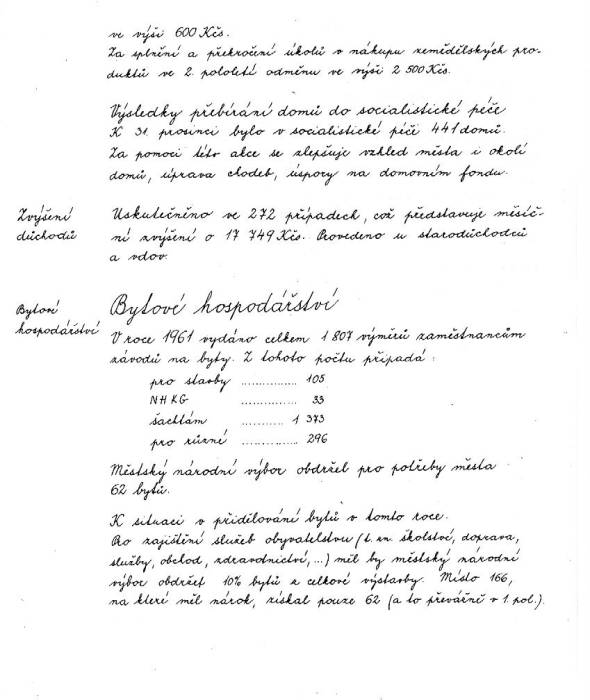 ve výši 600 Kčs.
Za splnění a překročení úkolů v nákupu zemědělských pro-
duktů ve 2. pololetí odměnu ve výši 2 500 Kčs.
Výsledky přebírání domů do socialistické péče
K 31. prosinci bylo v socialistické péče 441 domů.
Za pomoci této akce se zlepšuje vzhled města i okolí
domů, úprava chodeb, úspory na domovním fondu.
Zvýšení
důchodů
Uskutečněno ve 272 případech, což představuje měsíč-
ní zvýšení o 17 749 Kčs. Provedeno u starodůchodců
a vdov.
Bytové
hospodářství
Bytové hospodářství
V roce 1961 vydáno celkem 1 807 výměrů zaměstnancům
závodů na byty. Z tohoto počtu připadá :
pro stavby ............... 105
NHKG ............... 33
šachtám ............... 1 373
pro různé ............... 296
Městský národní výbor obdržel pro potřeby města
62 bytů.
K situaci v přidělování bytů v tomto roce.
Pro zajištění služeb obyvatelstvu (t. zn. školství, doprava,
služby, obchod, zdravodnictví, ...) měl by městský národní
výbor obdržet 10% bytů z celkové výstavby. Místo 166,
na které měl nárok, získal pouze 62 (a to převážně v 1. pol.).